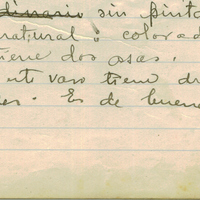 dinario sin pinta
natural o colorad
tiene dos asas.
vaso tiene d
es. Es de buena